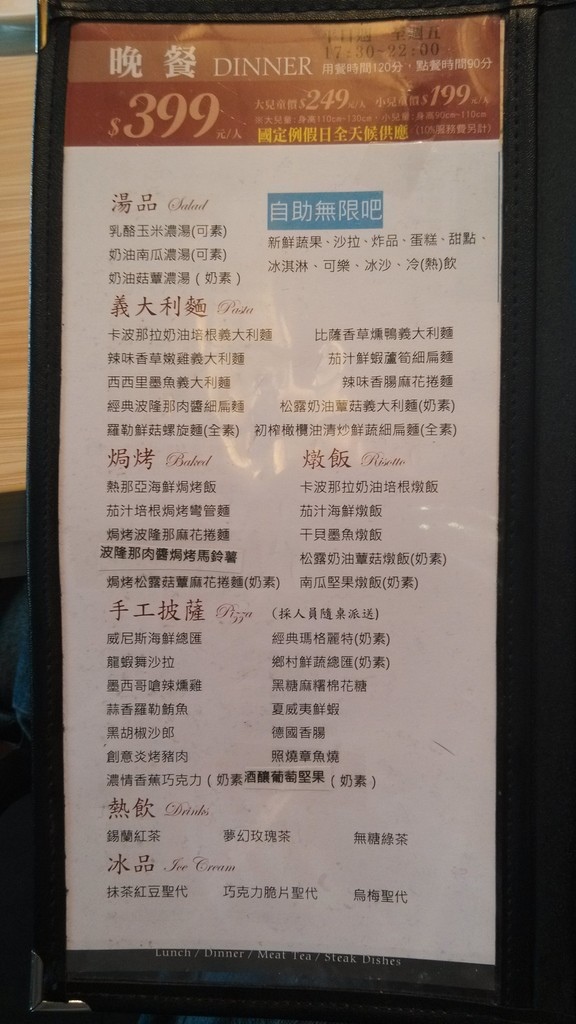 平日週一至週五
17:30~22:00
晚餐 DINNER 用餐時間120分，點餐時間90分
$399元/人 大兒童價$249元/人 小兒童價$199元/人
大兒童：身高110cm~130cm，小兒童：身高90cm~110cm
國定例假日全天候供應 (10%服務費另計)
湯品 Salad
乳酪玉米濃湯(可素)
奶油南瓜濃湯(可素)
奶油菇蕈濃湯（奶素）
自助無限吧
新鮮蔬果、沙拉、炸品、蛋糕、甜點、
冰淇淋、可樂、冰沙、冷(熱)飲
義大利麵 Pasta
卡波那拉奶油培根義大利麵 比薩香草燻鴨義大利麵
辣味香草嫩雞義大利麵 茄汁鮮蝦蘆筍細扁麵
西西里墨魚義大利麵 辣味香腸麻花捲麵
經典波隆那肉醬細扁麵 松露奶油蕈菇義大利麵(奶素)
羅勒鮮菇螺旋麵(全素) 初榨橄欖油清炒鮮蔬細扁麵(全素)
焗烤 Baked
熱那亞海鮮焗烤飯
茄汁培根焗烤彎管麵
焗烤波隆那麻花捲麵
波隆那肉醬焗烤馬鈴薯
焗烤松露菇蕈麻花捲麵(奶素)
燉飯 Risotto
卡波那拉奶油培根燉飯
茄汁海鮮燉飯
干貝墨魚燉飯
松露奶油蕈菇燉飯(奶素)
南瓜堅果燉飯(奶素)
手工披薩 Pizza （採人員隨桌派送）
威尼斯海鮮總匯 經典瑪格麗特(奶素)
龍蝦舞沙拉 鄉村鮮蔬總匯(奶素)
墨西哥嗆辣燻雞 黑糖麻糬棉花糖
蒜香羅勒鮪魚 夏威夷鮮蝦
黑胡椒沙郎 德國香腸
創意炎烤豬肉 照燒章魚燒
濃情香蕉巧克力（奶素 酒釀葡萄堅果（奶素）
熱飲 Drinks
錫蘭紅茶 夢幻玫瑰茶 無糖綠茶
冰品 Ice Cream
抹茶紅豆聖代 巧克力脆片聖代 烏梅聖代
Lunch / Dinner / Meat Tea / Steak Dishes